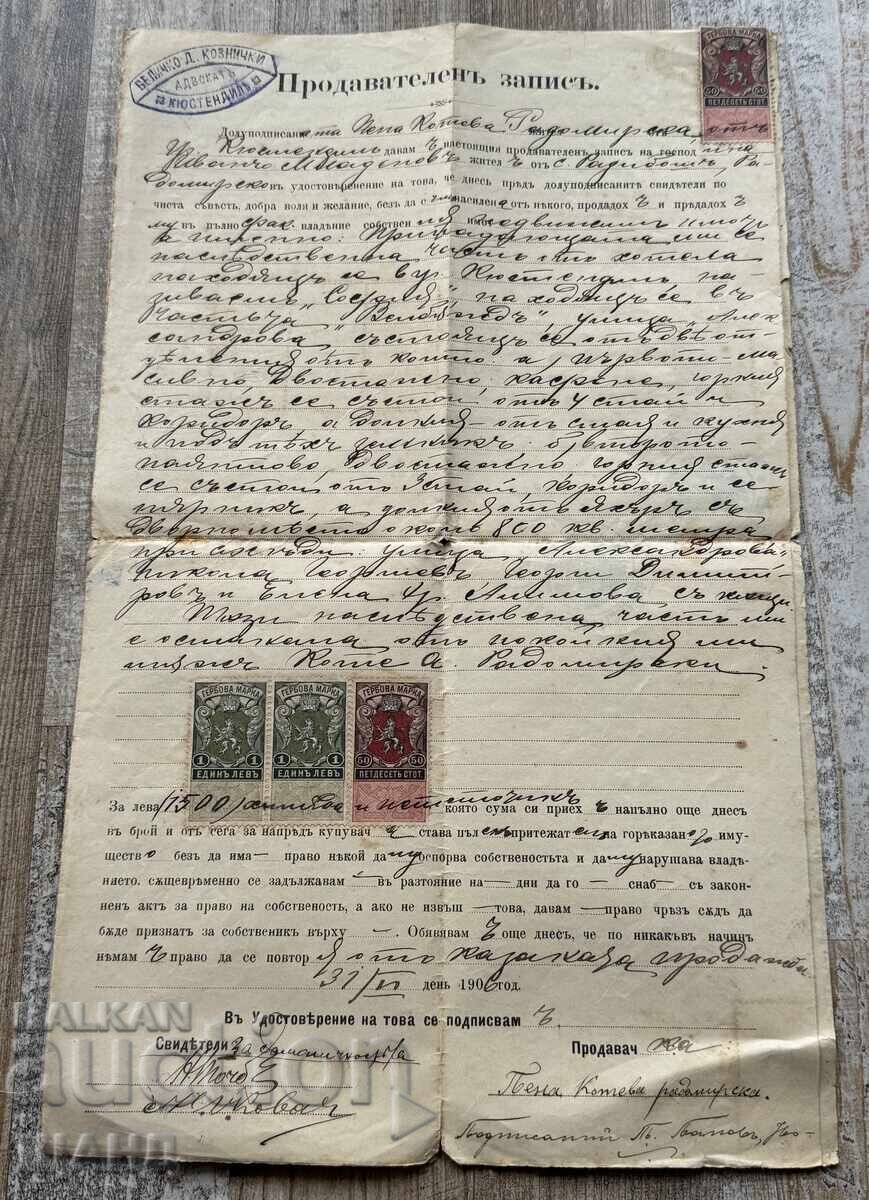 ВЕЛИЧКО Д. КОЗНИЧКИ
АДВОКАТЪ
КЮСТЕНДИЛЪ
Продавателенъ записъ.
ГЕРБОВА МАРКА
50 50
ПЕТДЕСЕТЬ СТОТ
Долуподписаната Пена Котева Радомирска, отъ
гр. Кюстендилъ давам ъ настоящия продавателен запис на господина
Иванчо Младеновъ жител ъ от с. Радибошъ, Ра-
домирско в удостоверение на това, че днесь предъ долуподписаните свидѣтели по
чиста съвѣсть, добра воля и желание, безъ да съмъ насилена отъ нѣкого, продадох ъ и прѣдадох ъ
му въ пълно владение собствения недвижимъ имотъ
а именно: Принадлежащата ми се
наслѣдствена часть отъ хотела
находящъ се въ гр. Кюстендилъ на-
зиваемъ „София“, находящъ се въ
частьта „Велбъждъ“, улица „Алек-
сандрова, състоящъ се отъ двѣ от-
дѣления отъ които: а) първото-ма-
сивно, двоетажно, горния
етажъ се състои отъ 4 стаи и
коридоръ, а долния-отъ стая и кухня
и подъ тѣхъ зимникъ. б) второто-
паянтово, двоетажно, горния етажъ
се състои отъ 3 стаи, коридоръ и се
а долния отъ яхъръ съ
дворно мѣсто около 800 кв. метра
при съсѣди: улица „Александрова“
Никола Георгиевъ Георги Димит-
ровъ и Алимова съ
Тази наслѣдствена часть ми
е останала отъ покойния ми
мѫжъ Коте А. Радомирски.
ГЕРБОВА МАРКА ГЕРБОВА МАРКА ГЕРБОВА МАРКА
1 1 1 1 50 50
ЕДИНЪ ЛЕВЪ ЕДИНЪ ЛЕВЪ ПЕТДЕСЕТЬ СТОТ
За лева (1500) хиляда и петстотинъ която сума си приех ъ напълно още днесъ
въ брой и от сега за напредъ купувач ъ става пъленъ притежател на горъказаното иму-
щество безъ да има — право някой да му оспорва собственостьта и да му нарушава владѣ-
нието, сжщевременно се задължавам въ разтояние на — дни да го — снаб — съ закон-
ненъ актъ за право на собственость, а ако не извъш — това, давам — право чрѣзъ сждъ да
бжде признатъ за собственикъ върху —. Обявявам ъ още днесъ, че по никакъвъ начинъ
нѣмамъ право да се повторя отъ казаната продажба
31/ день 1906 год.
Въ Удостовѣрение на това се подписвам ъ.
Свидѣтели
Продавачка:
Пена Котева радомирска.
BALKAN
auction